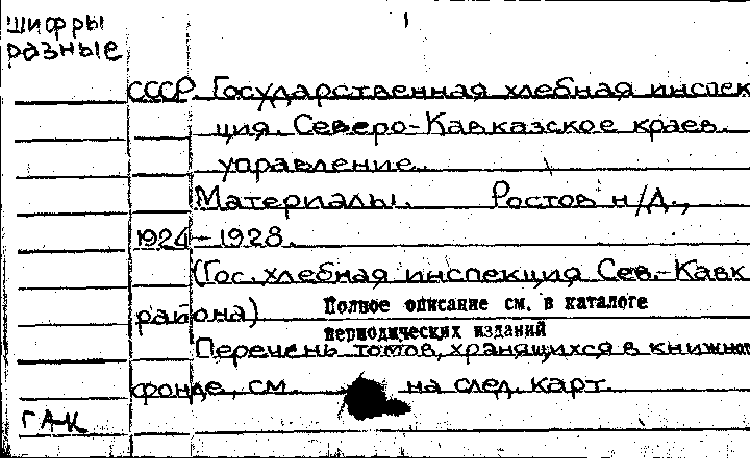 шифры
разные
СССР. Государственная хлебная инспек
ция. Северо-Кавказское краев.
управление.
Материалы. Ростов н/Д.,
1924-1928.
(Гос. хлебная инспекция Сев.-Кавк
района) Полное описание см. в каталоге
периодических изданий
Перечень томов, хранящихся в книжном
фонде, см. на след. карт.
ГАК